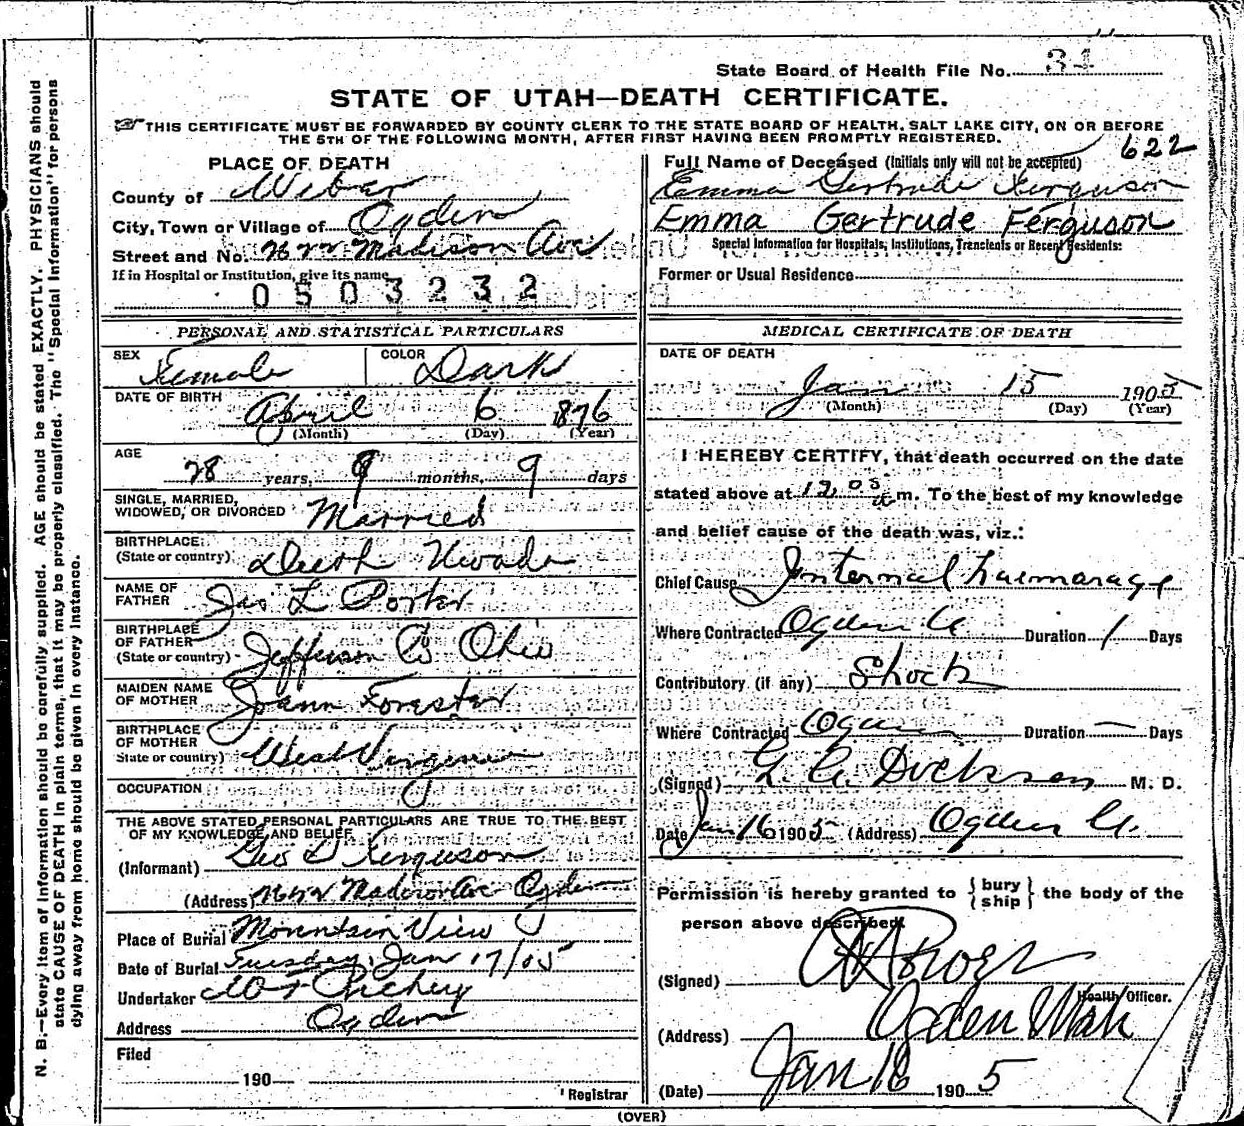 State Board of Health File No. 34
STATE OF UTAH—DEATH CERTIFICATE.
THIS CERTIFICATE MUST BE FORWARDED BY COUNTY CLERK TO THE STATE BOARD OF HEALTH, SALT LAKE CITY, ON OR BEFORE
THE 5TH OF THE FOLLOWING MONTH, AFTER FIRST HAVING BEEN PROMPTLY REGISTERED.
622
PLACE OF DEATH
County of Weber
City, Town or Village of Ogden
Street and No. Madison Ave
If in Hospital or Institution, give its name
0503232
Full Name of Deceased (Initials only will not be accepted)
Emma Gertrude Ferguson
Emma Gertrude Ferguson
Special Information for Hospitals, Institutions, Transients or Recent Residents:
Former or Usual Residence
PERSONAL AND STATISTICAL PARTICULARS
SEX Female COLOR Dark
DATE OF BIRTH April 6 1876
(Month) (Day) (Year)
AGE 28 years, 9 months, 9 days
SINGLE, MARRIED,
WIDOWED, OR DIVORCED Married
BIRTHPLACE:
(State or country) Deeth Nevada
NAME OF
FATHER Jas L Porter
BIRTHPLACE
OF FATHER
(State or country) Jefferson Co Ohio
MAIDEN NAME
OF MOTHER Joann Forester
BIRTHPLACE
OF MOTHER
State or country) West Virginia
OCCUPATION
THE ABOVE STATED PERSONAL PARTICULARS ARE TRUE TO THE BEST
OF MY KNOWLEDGE AND BELIEF
(Informant) Geo D Ferguson
(Address) Madison Ave Ogden
Place of Burial Mountain View
Date of Burial Tuesday, Jan 17/05
Undertaker
Address Ogden
Filed
190
Registrar
MEDICAL CERTIFICATE OF DEATH
DATE OF DEATH
Jan 15 1905
(Month) (Day) (Year)
I HEREBY CERTIFY, that death occurred on the date
stated above at 12 05 a.m. To the best of my knowledge
and belief cause of the death was, viz.:
Chief Cause Internal haemarage
Where Contracted Ogden U Duration 1 Days
Contributory (if any) Shock
Where Contracted Ogden Duration — Days
(Signed) Dickson M. D.
Date Jan 16 1905 (Address) Ogden U.
Permission is hereby granted to {bury
ship} the body of the
person above described.
(Signed)
Health Officer.
(Address) Ogden Utah
(Date) Jan 16 1905
(OVER)
N. B.—Every item of information should be carefully supplied. AGE should be stated EXACTLY. PHYSICIANS should
state CAUSE OF DEATH in plain terms, that it may be properly classified. The "Special Information" for persons
dying away from home should be given in every instance.